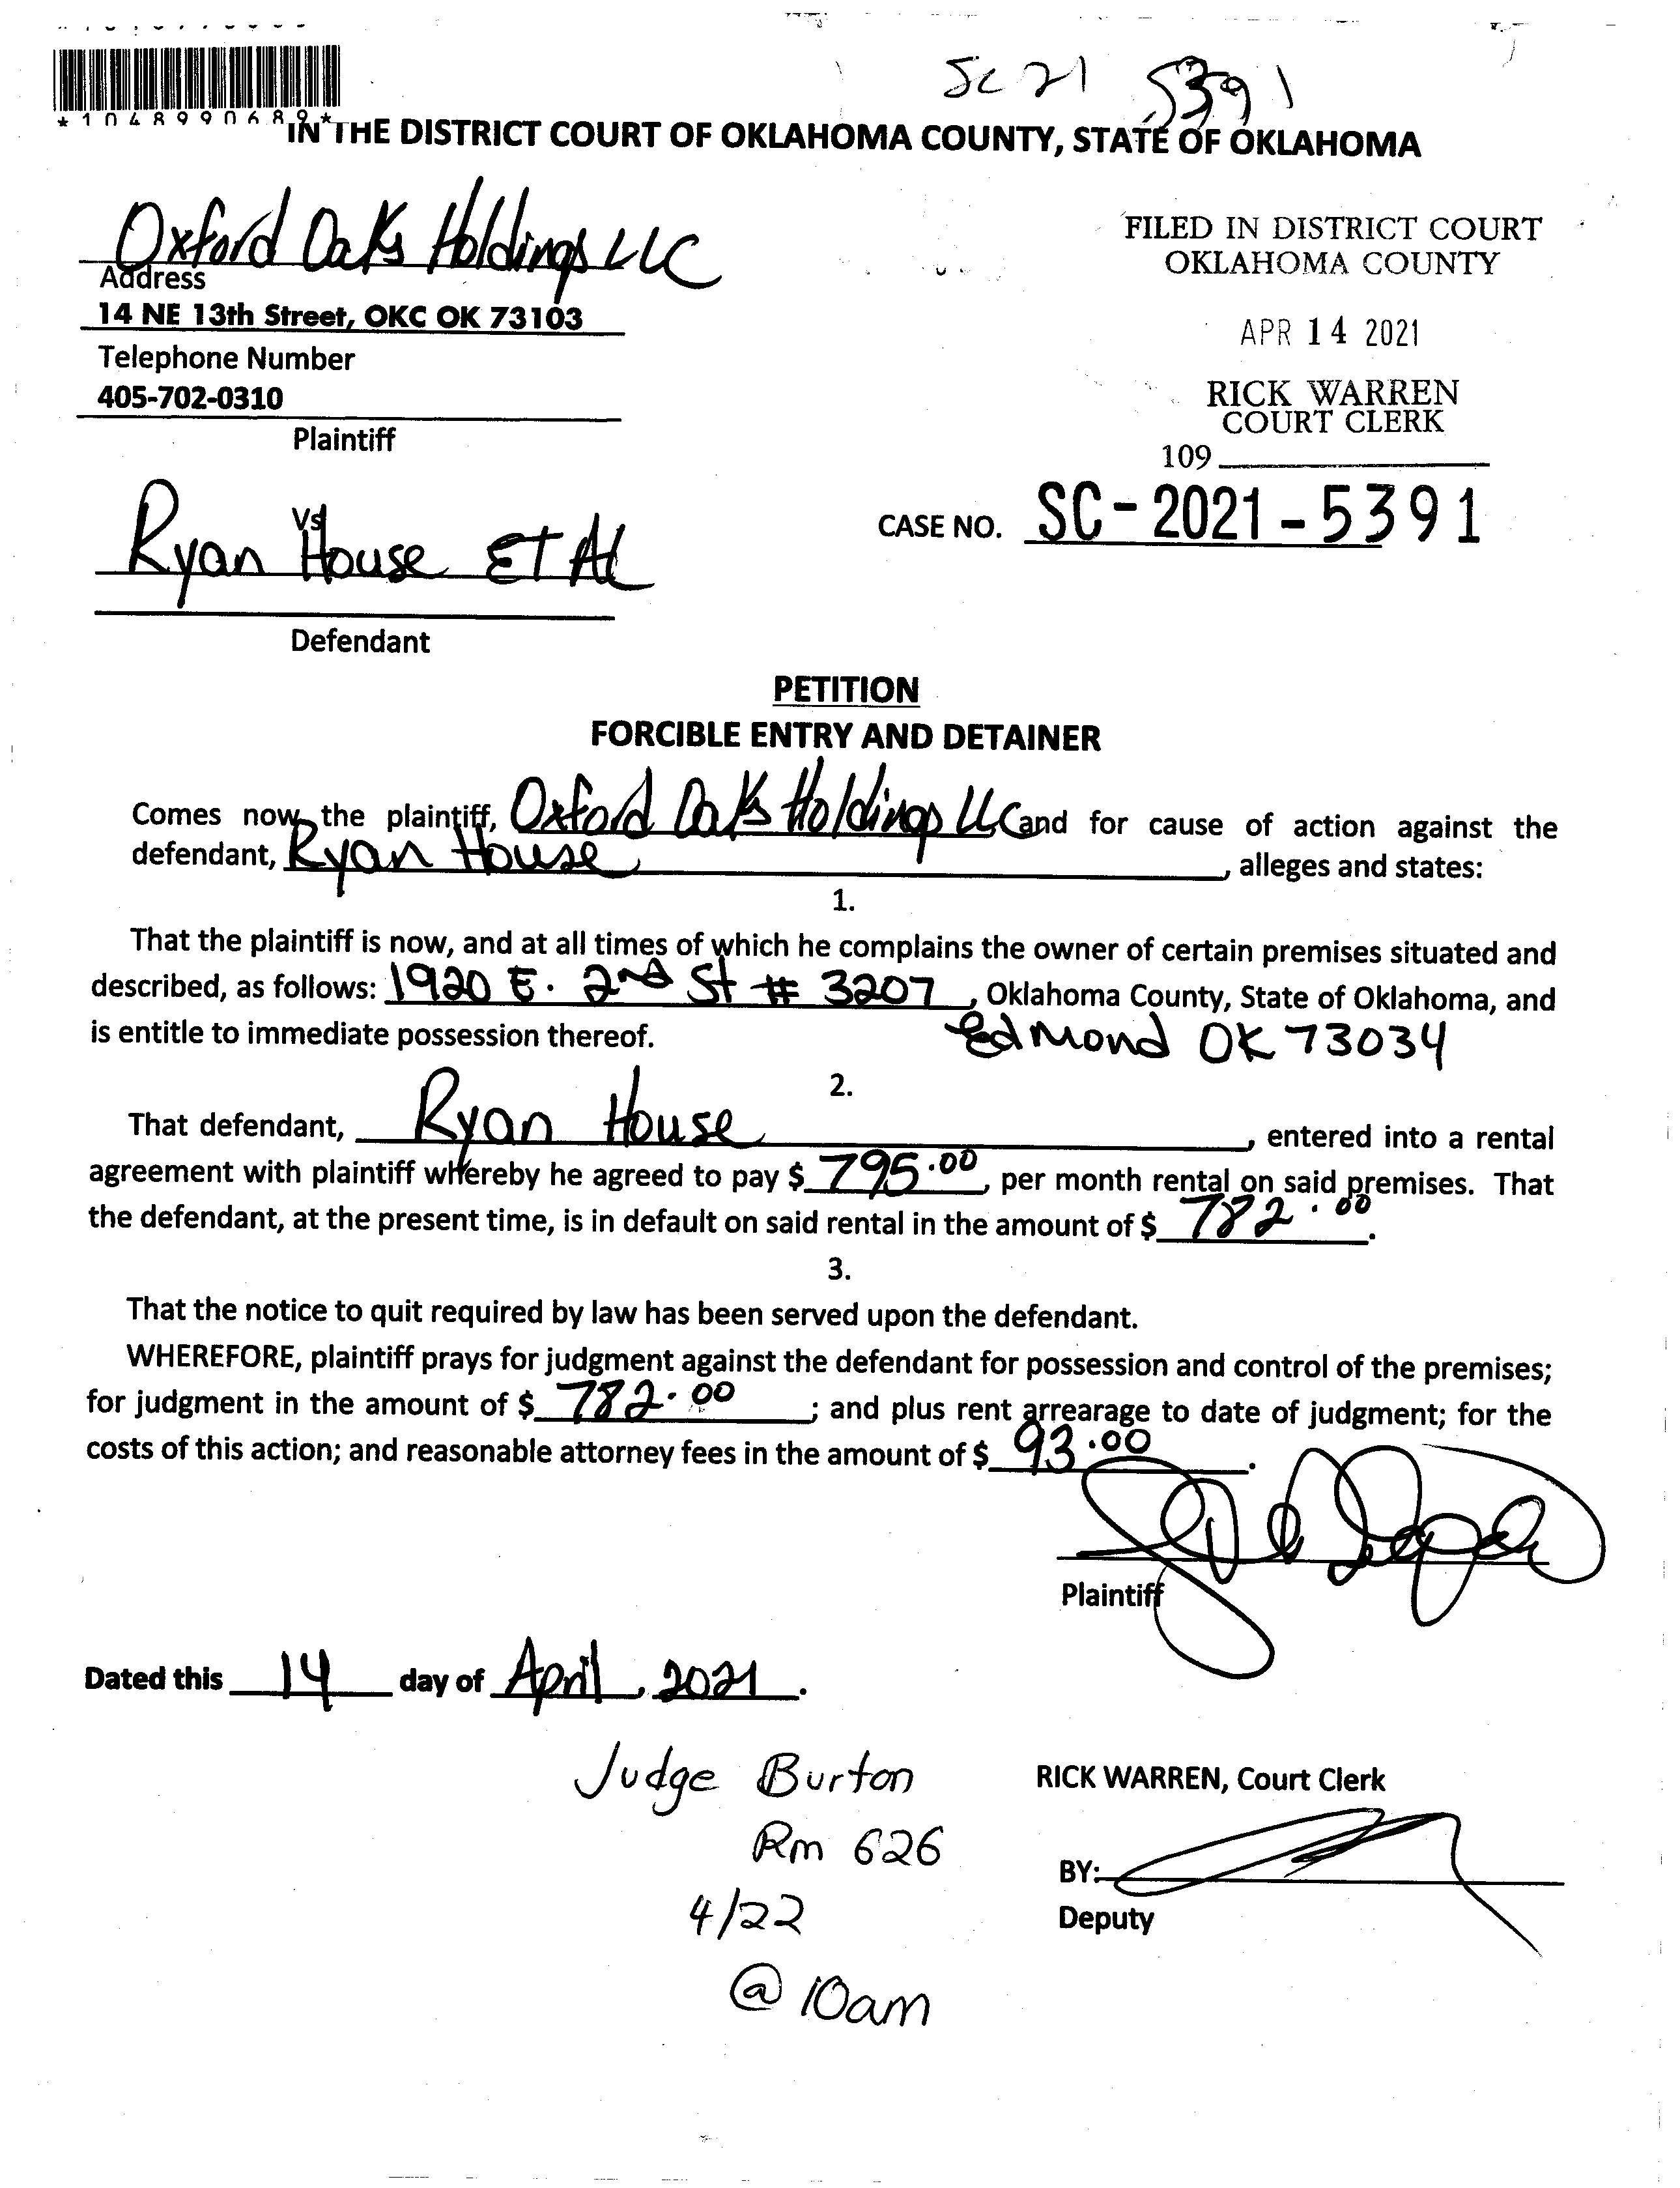 SC 21 5391
*1048990689*
IN THE DISTRICT COURT OF OKLAHOMA COUNTY, STATE OF OKLAHOMA
Oxford Oaks Holdings LLC
Address
14 NE 13th Street, OKC OK 73103
Telephone Number
405-702-0310
Plaintiff
FILED IN DISTRICT COURT
OKLAHOMA COUNTY
APR 14 2021
RICK WARREN
COURT CLERK
109
Vs
Ryan House ET AL
Defendant
CASE NO. SC-2021-5391
PETITION
FORCIBLE ENTRY AND DETAINER
Comes now the plaintiff, Oxford Oaks Holdings LLC and for cause of action against the
defendant, Ryan House, alleges and states:
1.
That the plaintiff is now, and at all times of which he complains the owner of certain premises situated and
described, as follows: 1920 E. 2nd St # 3207, Oklahoma County, State of Oklahoma, and
is entitle to immediate possession thereof. Edmond OK 73034
2.
That defendant, Ryan House, entered into a rental
agreement with plaintiff whereby he agreed to pay $ 795.00, per month rental on said premises. That
the defendant, at the present time, is in default on said rental in the amount of $ 782.00.
3.
That the notice to quit required by law has been served upon the defendant.
WHEREFORE, plaintiff prays for judgment against the defendant for possession and control of the premises;
for judgment in the amount of $ 782.00; and plus rent arrearage to date of judgment; for the
costs of this action; and reasonable attorney fees in the amount of $ 93.00.
Plaintiff
Dated this 14 day of April, 2021.
Judge Burton
Rm 626
4/22
@ 10am
RICK WARREN, Court Clerk
BY:
Deputy